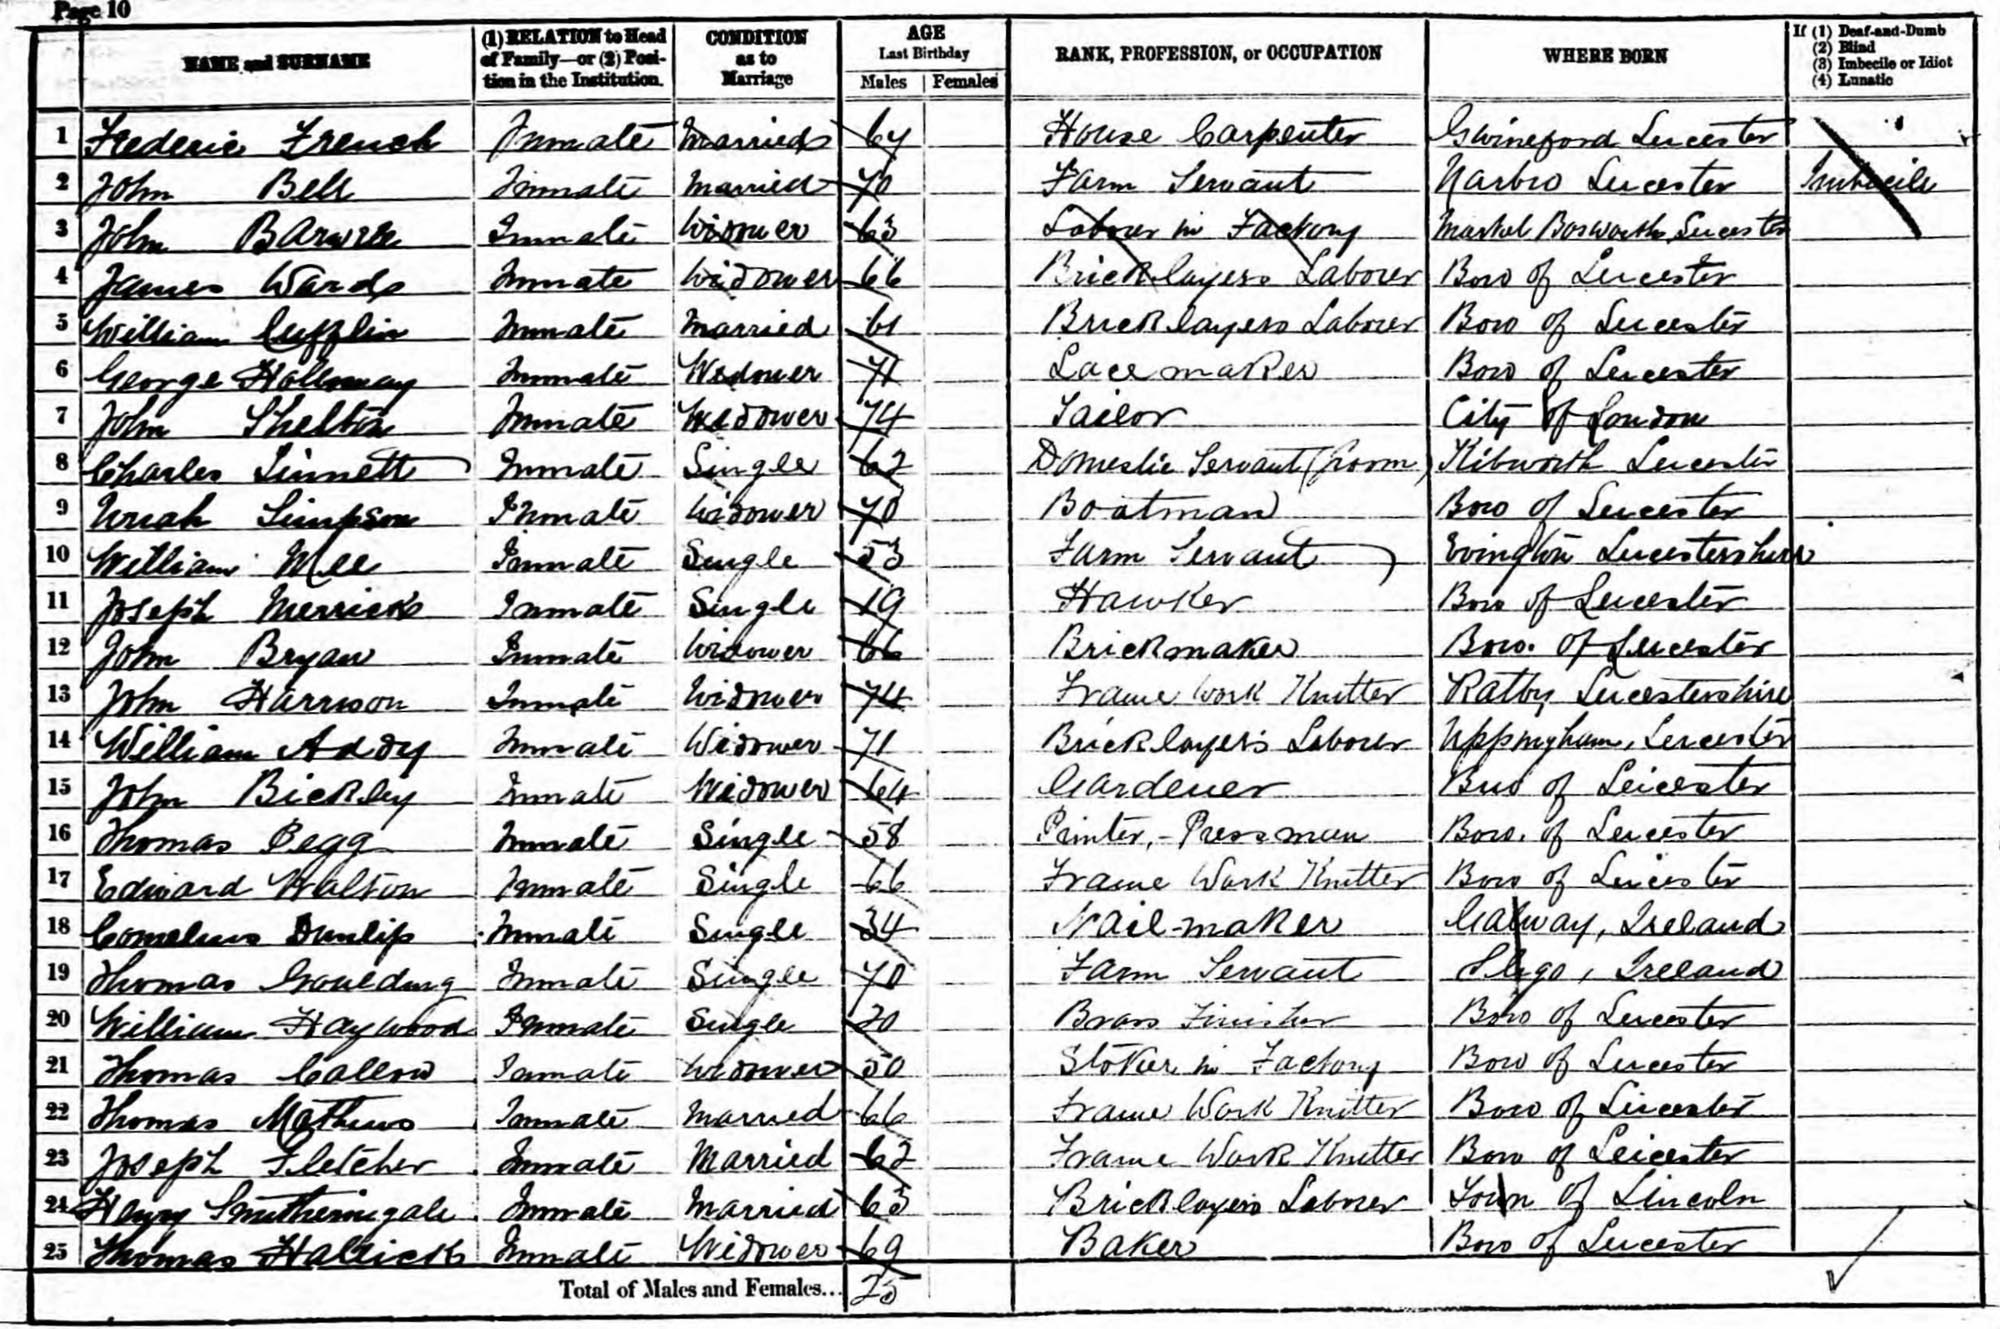 Page 10
NAME and SURNAME (1) RELATION to Head of Family—or (2) Position in the Institution. CONDITION as to Marriage AGE Last Birthday Males Females RANK, PROFESSION, or OCCUPATION WHERE BORN If (1) Deaf-and-Dumb (2) Blind (3) Imbecile or Idiot (4) Lunatic
1 Frederic French Inmate Married 64 House Carpenter Leicester
2 John Bell Inmate Married 70 Farm Servant Narbro Leicester Imbecile
3 John Inmate Widower 63 Labourer in Factory Market Bosworth Leicester
4 James Ward Inmate Widower 66 Bricklayers Labourer Boro of Leicester
5 William Cufflin Inmate Married 61 Bricklayers Labourer Boro of Leicester
6 George Holloway Inmate Widower 71 Lace maker Boro of Leicester
7 John Shelton Inmate Widower 74 Tailor City of London
8 Charles Sinnett Inmate Single 62 Domestic Servant (Groom) Kibworth Leicester
9 Uriah Simpson Inmate Widower 70 Boatman Boro of Leicester
10 William Mee Inmate Single 53 Farm Servant Evington Leicestershire
11 Joseph Merrick Inmate Single 19 Hawker Boro of Leicester
12 John Bryan Inmate Widower 66 Brickmaker Boro. of Leicester
13 John Harrison Inmate Widower 74 Frame Work Knitter Ratby Leicestershire
14 William Addy Inmate Widower 71 Bricklayer's Labourer Uppingham, Leicester
15 John Bickley Inmate Widower 64 Gardener Boro of Leicester
16 Thomas Pegg Inmate Single 58 Printer,-Pressman Boro. of Leicester
17 Edward Walton Inmate Single 66 Frame Work Knitter Boro of Leicester
18 Cornelius Dunlip Inmate Single 34 Nail-maker Galway, Ireland
19 Thomas Goulding Inmate Single 70 Farm Servant Sligo, Ireland
20 William Haywood Inmate Single 20 Brass Finisher Boro of Leicester
21 Thomas Callow Inmate Widower 50 Stoker in Factory Boro of Leicester
22 Thomas Mathews Inmate Married 66 Frame Work Knitter Boro of Leicester
23 Joseph Fletcher Inmate Married 62 Frame Work Knitter Boro of Leicester
24 Henry Smitheringale Inmate Married 63 Bricklayers Labourer Town of Lincoln
25 Thomas Hallick Inmate Widower 69 Baker Boro of Leicester
Total of Males and Females... 25